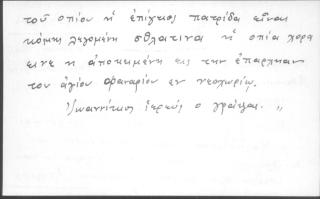 τοῦ ὁποίου ἡ ἐπίγειος πατρίδα εἶναι
κόμης λεγομένη σθλατινα ἡ οπία χορα
εινε η αποκιμένη εις την ἐπαρχηαν
του ἁγίου φαναρίου εν νεοχωρίῳ.
Ἰωαννίκιος ἱερεὺς ο γράψας. "